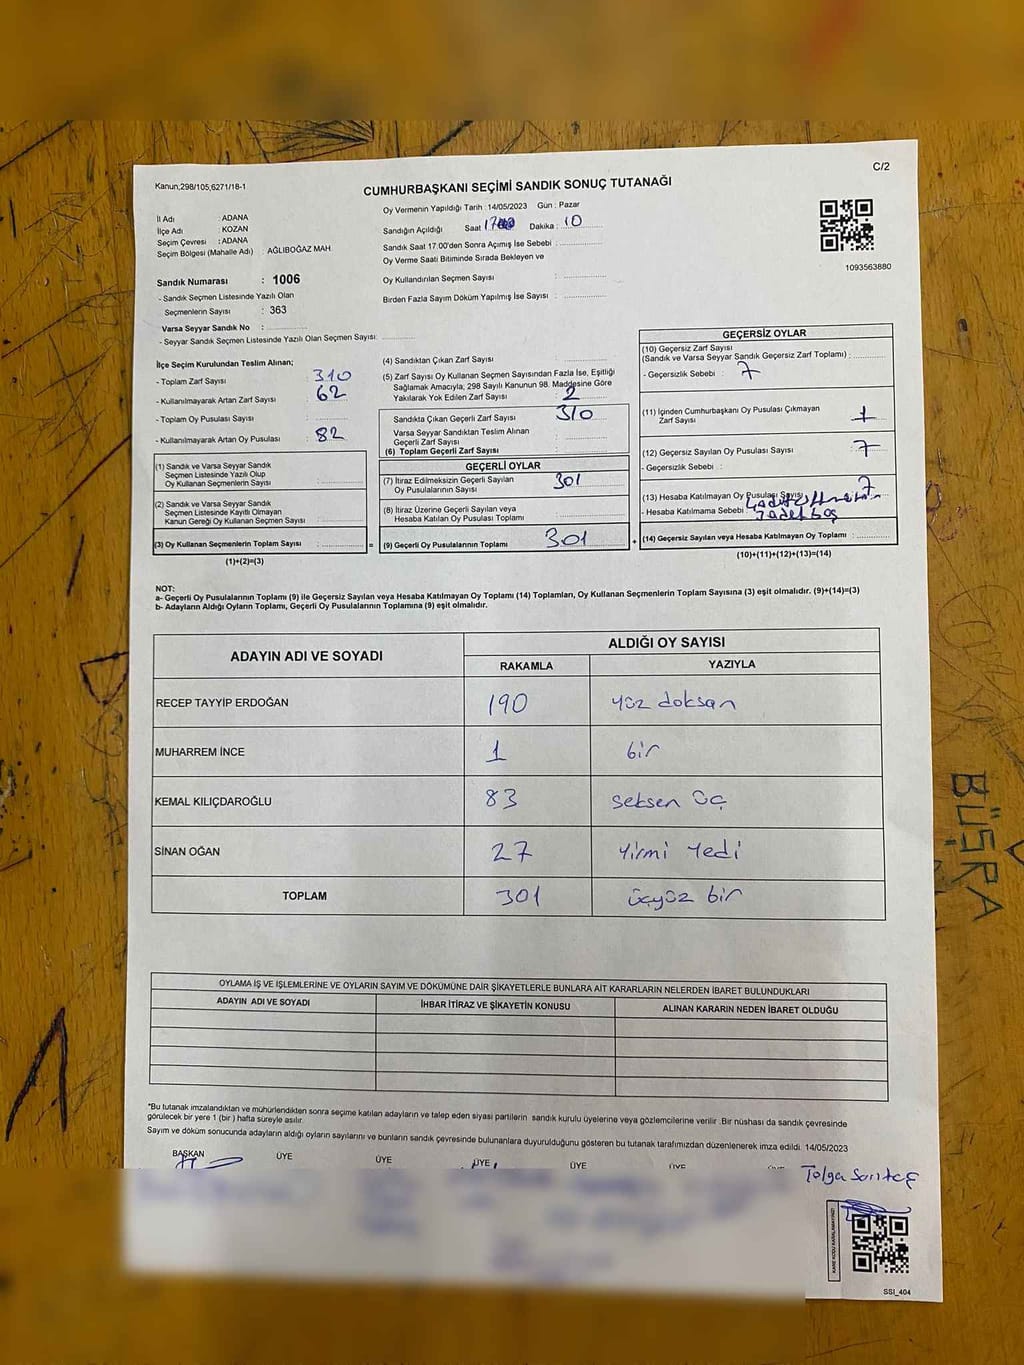 C/2
Kanun,298/105,6271/18-1
CUMHURBAŞKANI SEÇİMİ SANDIK SONUÇ TUTANAĞI
İl Adı : ADANA
İlçe Adı : KOZAN
Seçim Çevresi : ADANA
Seçim Bölgesi (Mahalle Adı) : AĞLIBOĞAZ MAH.
Oy Vermenin Yapıldığı Tarih : 14/05/2023 Gün : Pazar
Sandığın Açıldığı Saat Dakika : 10
Sandık Saat 17.00'den Sonra Açımış İse Sebebi :
Oy Verme Saati Bitiminde Sırada Bekleyen ve
Oy Kullandırılan Seçmen Sayısı :
Birden Fazla Sayım Döküm Yapılmış İse Sayısı :
1093563880
Sandık Numarası : 1006
- Sandık Seçmen Listesinde Yazılı Olan
Seçmenlerin Sayısı : 363
Varsa Seyyar Sandık No :
- Seyyar Sandık Seçmen Listesinde Yazılı Olan Seçmen Sayısı:
İlçe Seçim Kurulundan Teslim Alınan;
- Toplam Zarf Sayısı : 310
- Kullanılmayarak Artan Zarf Sayısı : 62
- Toplam Oy Pusulası Sayısı :
- Kullanılmayarak Artan Oy Pusulası : 82
(1) Sandık ve Varsa Seyyar Sandık
Seçmen Listesinde Yazılı Olup
Oy Kullanan Seçmenlerin Sayısı :
(2) Sandık ve Varsa Seyyar Sandık
Seçmen Listesinde Kayıtlı Olmayan
Kanun Gereği Oy Kullanan Seçmen Sayısı :
(3) Oy Kullanan Seçmenlerin Toplam Sayısı :
(1)+(2)=(3)
(4) Sandıktan Çıkan Zarf Sayısı :
(5) Zarf Sayısı Oy Kullanan Seçmen Sayısından Fazla İse, Eşitliği
Sağlamak Amacıyla; 298 Sayılı Kanunun 98. Maddesine Göre
Yakılarak Yok Edilen Zarf Sayısı : 2
Sandıkta Çıkan Geçerli Zarf Sayısı : 310
Varsa Seyyar Sandıktan Teslim Alınan
Geçerli Zarf Sayısı :
(6) Toplam Geçerli Zarf Sayısı :
GEÇERLİ OYLAR
(7) İtiraz Edilmeksizin Geçerli Sayılan
Oy Pusulalarının Sayısı : 301
(8) İtiraz Üzerine Geçerli Sayılan veya
Hesaba Katılan Oy Pusulası Toplamı :
= (9) Geçerli Oy Pusulalarının Toplamı : 301 +
GEÇERSİZ OYLAR
(10) Geçersiz Zarf Sayısı
(Sandık ve Varsa Seyyar Sandık Geçersiz Zarf Toplamı) :
- Geçersizlik Sebebi : 7
(11) İçinden Cumhurbaşkanı Oy Pusulası Çıkmayan
Zarf Sayısı : 1
(12) Geçersiz Sayılan Oy Pusulası Sayısı : 7
- Geçersizlik Sebebi :
(13) Hesaba Katılmayan Oy Pusulası Sayısı 7
- Hesaba Katılmama Sebebi
(14) Geçersiz Sayılan veya Hesaba Katılmayan Oy Toplamı :
(10)+(11)+(12)+(13)=(14)
NOT:
a- Geçerli Oy Pusulalarının Toplamı (9) ile Geçersiz Sayılan veya Hesaba Katılmayan Oy Toplamı (14) Toplamları, Oy Kullanan Seçmenlerin Toplam Sayısına (3) eşit olmalıdır. (9)+(14)=(3)
b- Adayların Aldığı Oyların Toplamı, Geçerli Oy Pusulalarının Toplamına (9) eşit olmalıdır.
ADAYIN ADI VE SOYADI ALDIĞI OY SAYISI
RAKAMLA YAZIYLA
RECEP TAYYİP ERDOĞAN 190 yüz doksan
MUHARREM İNCE 1 bir
KEMAL KILIÇDAROĞLU 83 seksen üç
SİNAN OĞAN 27 yirmi yedi
TOPLAM 301 üçyüz bir
OYLAMA İŞ VE İŞLEMLERİNE VE OYLARIN SAYIM VE DÖKÜMÜNE DAİR ŞİKAYETLERLE BUNLARA AİT KARARLARIN NELERDEN İBARET BULUNDUKLARI
ADAYIN ADI VE SOYADI İHBAR İTİRAZ VE ŞİKAYETİN KONUSU ALINAN KARARIN NEDEN İBARET OLDUĞU
*Bu tutanak imzalandıktan ve mühürlendikten sonra seçime katılan adayların ve talep eden siyasi partilerin sandık kurulu üyelerine veya gözlemcilerine verilir .Bir nüshası da sandık çevresinde
görülecek bir yere 1 (bir ) hafta süreyle asılır.
Sayım ve döküm sonucunda adayların aldığı oyların sayılarını ve bunların sandık çevresinde bulunanlara duyurulduğunu gösteren bu tutanak tarafımızdan düzenlenerek imza edildi. 14/05/2023
BAŞKAN ÜYE ÜYE ÜYE ÜYE ÜYE
Tolga Sarıtaş
KARE KODU KARALAMAYINIZ!
SSI_404
BÜŞRA